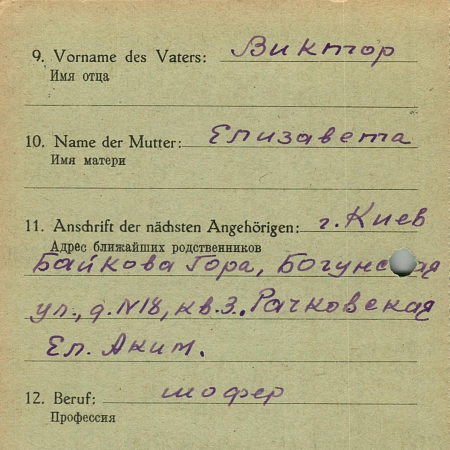 9. Vorname des Vaters: Виктор
Имя отца
10. Name der Mutter: Елизавета
Имя матери
11. Anschrift der nächsten Angehörigen: г. Киев
Адрес ближайших родственников
Байкова Гора, Богунская
ул., д. №18, кв. 3. Рачковская
Ел. Аким.
12. Beruf: шофер
Профессия